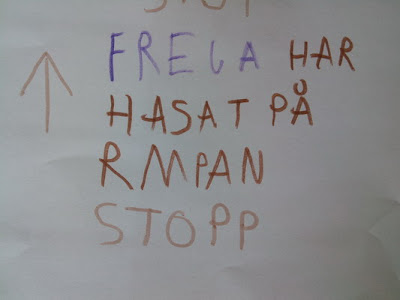 FREGA HAR
HASAT PÅ
RMPAN
STOPP